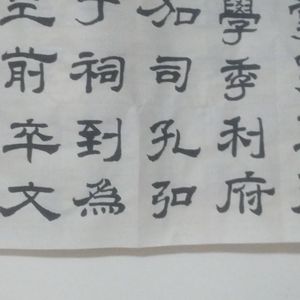 學季利府
加司孔弘
祠到為
前卒文